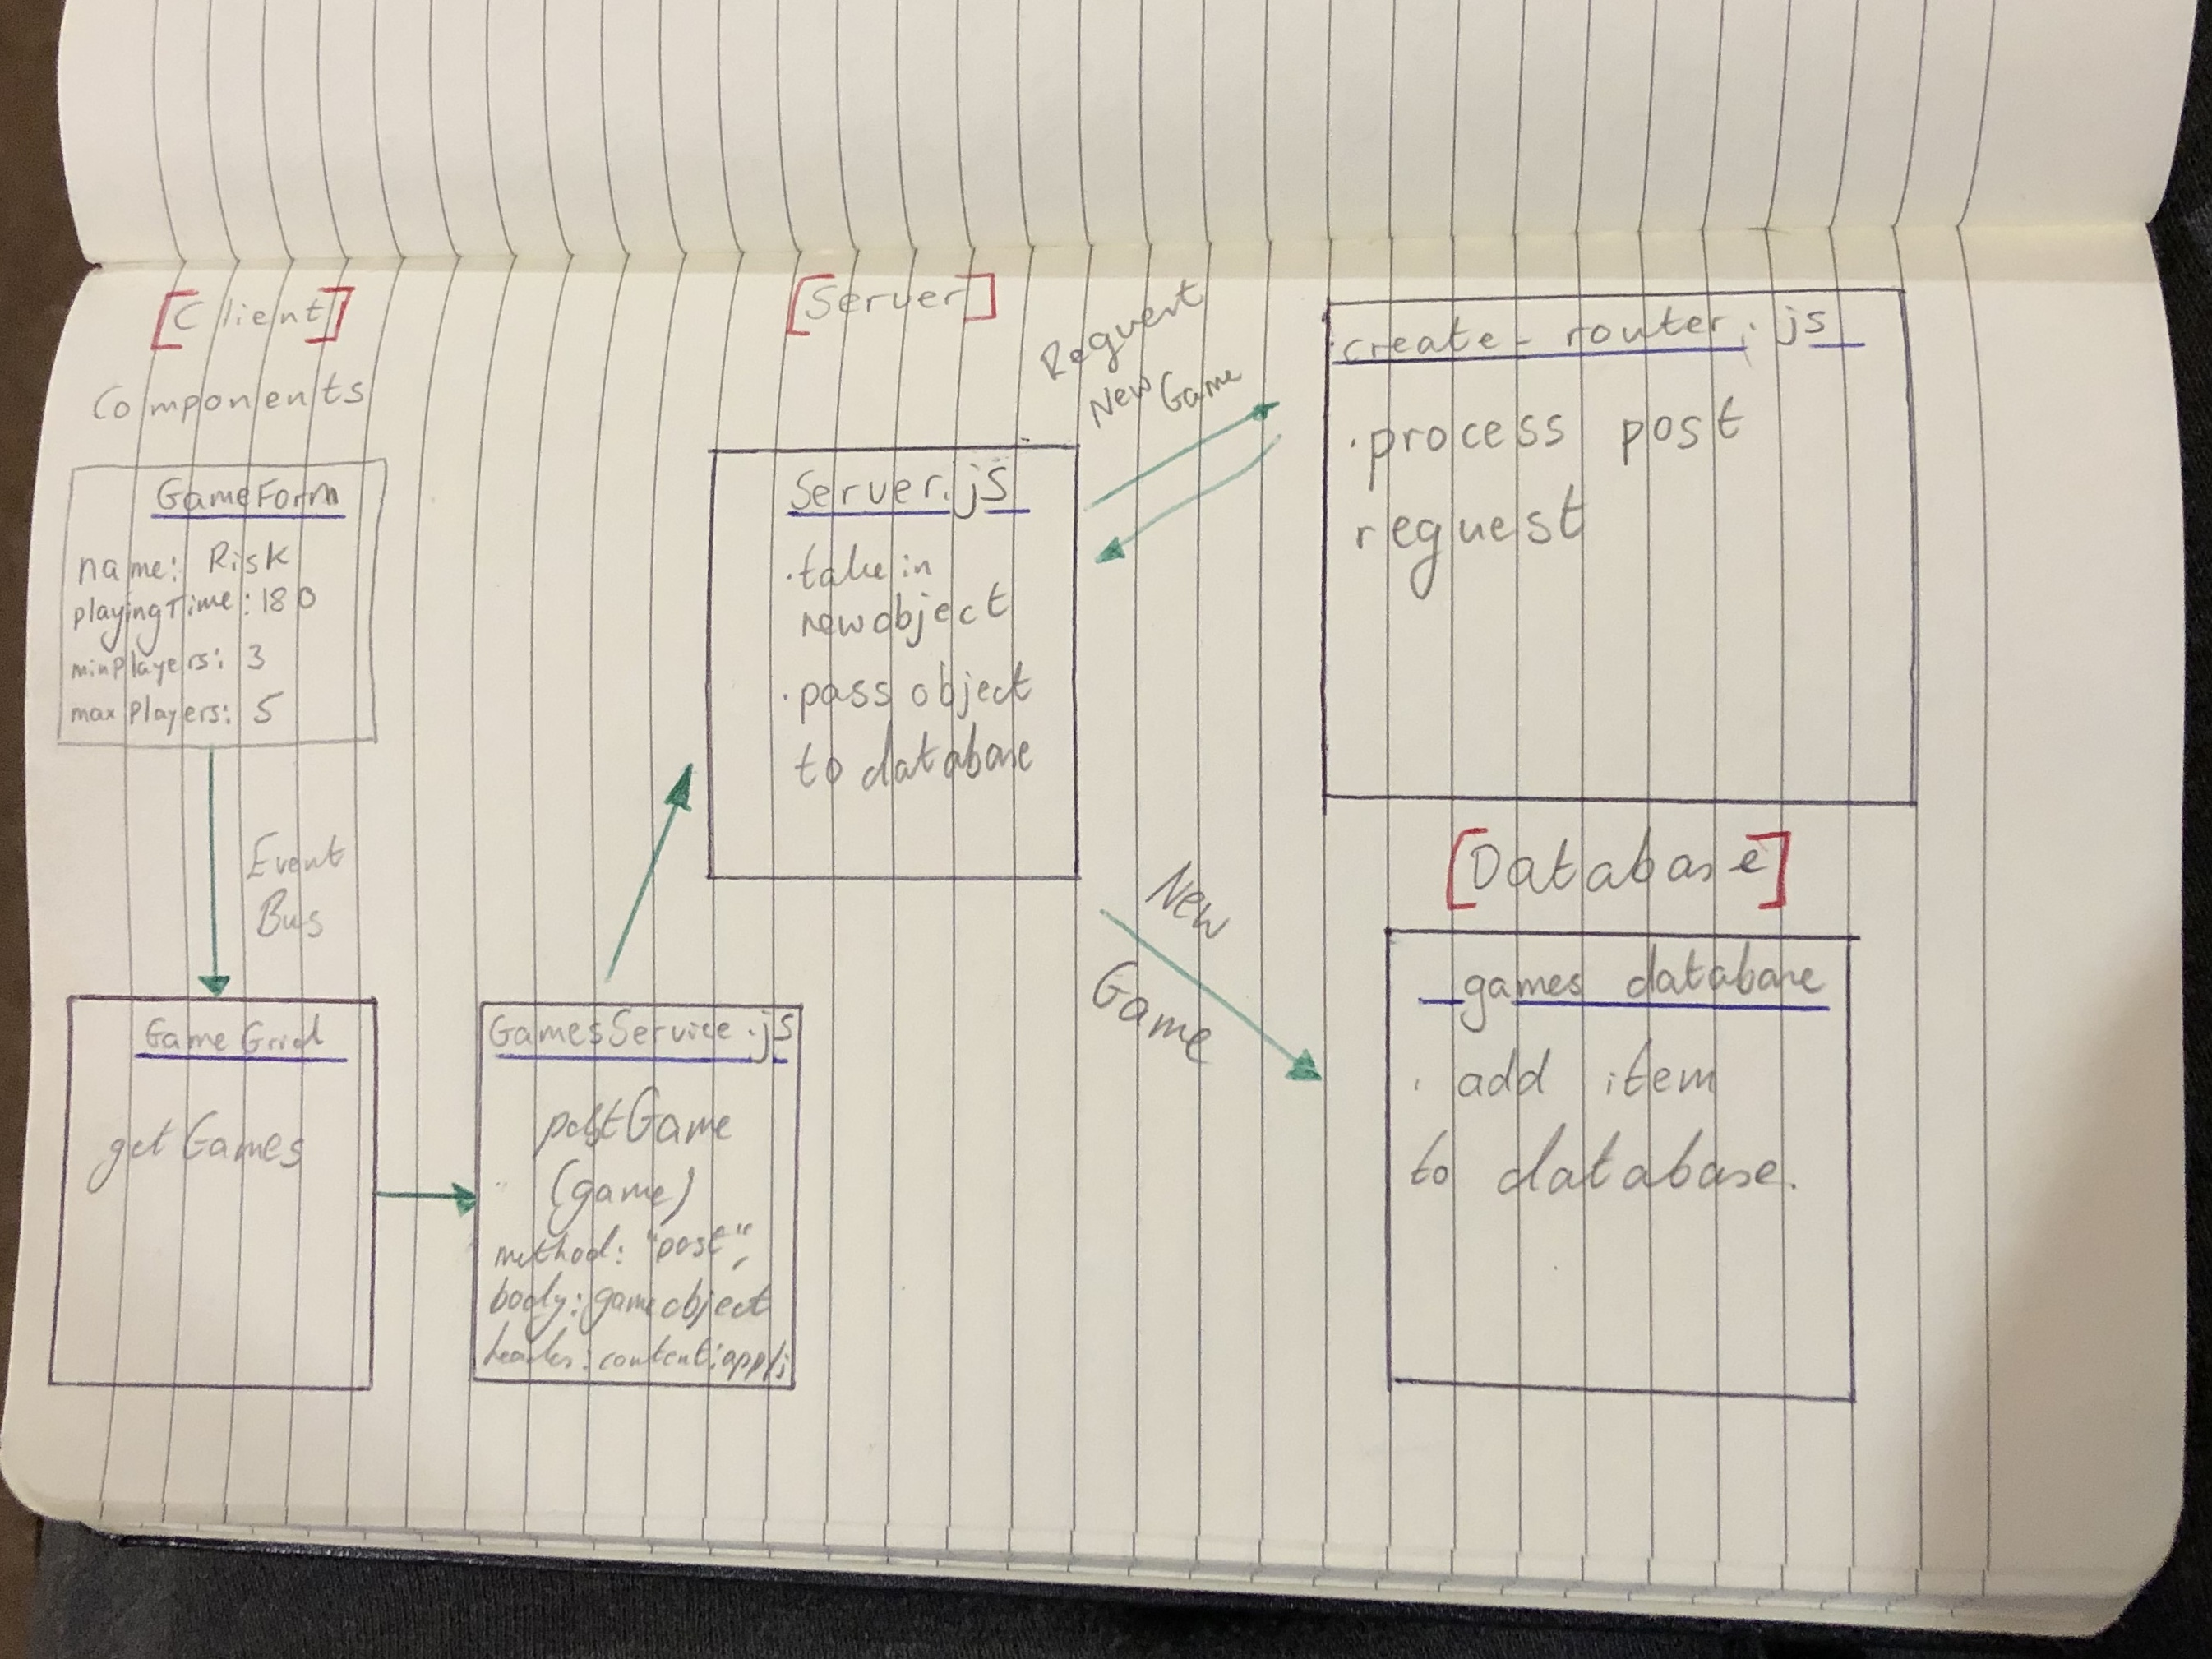 [Client]
Components
GameForm
name: Risk
playingTime: 180
minPlayers: 3
maxPlayers: 5
Event
Bus
GameGrid
getGames
GamesService.js
postGame
(game)
method: "post",
body: gameobject
content: app/j
[Server]
Server.js
·take in
newobject
·pass object
to database
Request
New Game
create_router.js
·process post
request
New
Game
[Database]
games database
· add item
to database.